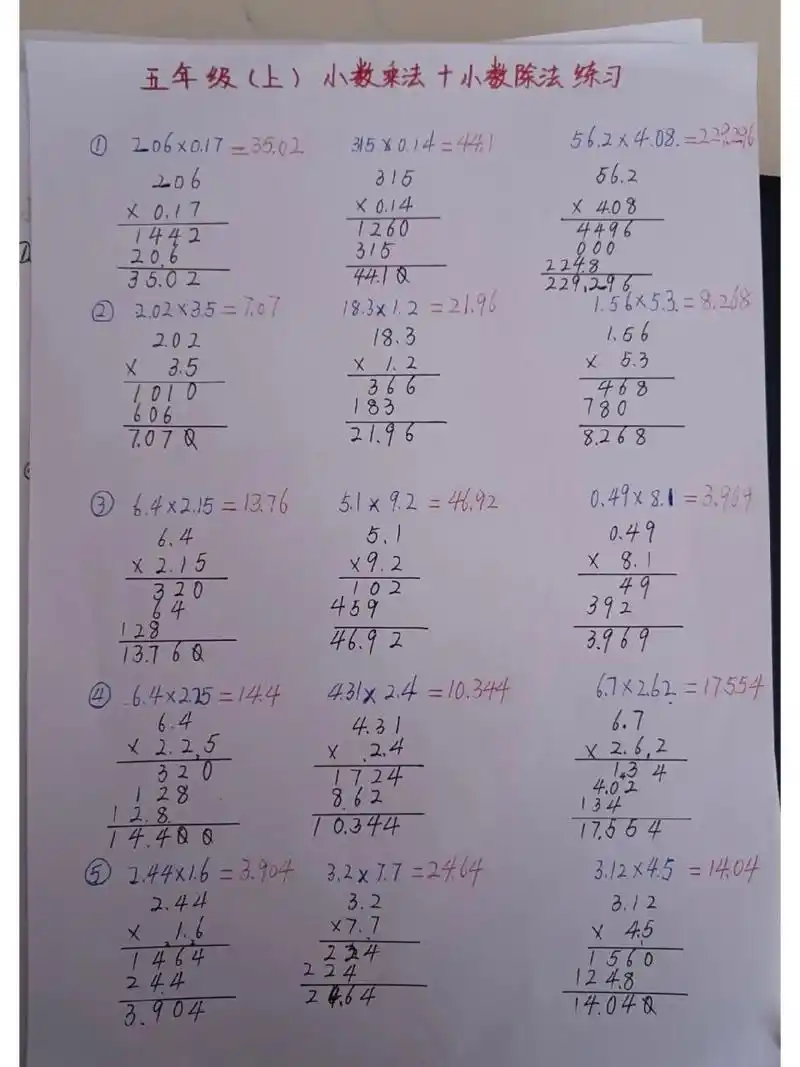 五年级(上) 小数乘法+小数除法 练习
① 206×0.17=35.02 315×0.14=44.1 56.2×4.08.=229.296
206 315 56.2
× 0.17 × 0.14 × 4.08
1442 1260 4496
20.6 315 000
35.02 44.10 224.8
229.296
② 2.02×3.5=7.07 18.3×1.2=21.96 1.56×5.3=8.268
202 18.3 1.56
× 3.5 × 1.2 × 5.3
1010 366 468
606 183 780
7.070 21.96 8.268
③ 6.4×2.15=13.76 5.1×9.2=46.92 0.49×8.1=3.969
6.4 5.1 0.49
× 2.15 ×9.2 × 8.1
320 102 49
64 459 392
128 46.92 3.969
13.760
④ 6.4×2.25=14.4 4.31×2.4=10.344 6.7×2.62=17.554
6.4 4.31 6.7
× 2.2,5 × 2.4 × 2.6,2
320 1724 134
128 8.62 4.02
12.8 10.344 134
14.400 17.554
⑤ 2.44×1.6=3.904 3.2×7.7=24.64 3.12×4.5=14.04
2.44 3.2 3.12
× 1.6 ×7.7 × 4.5
1464 224 1560
24.4 224 124.8
3.904 24.64 14.040